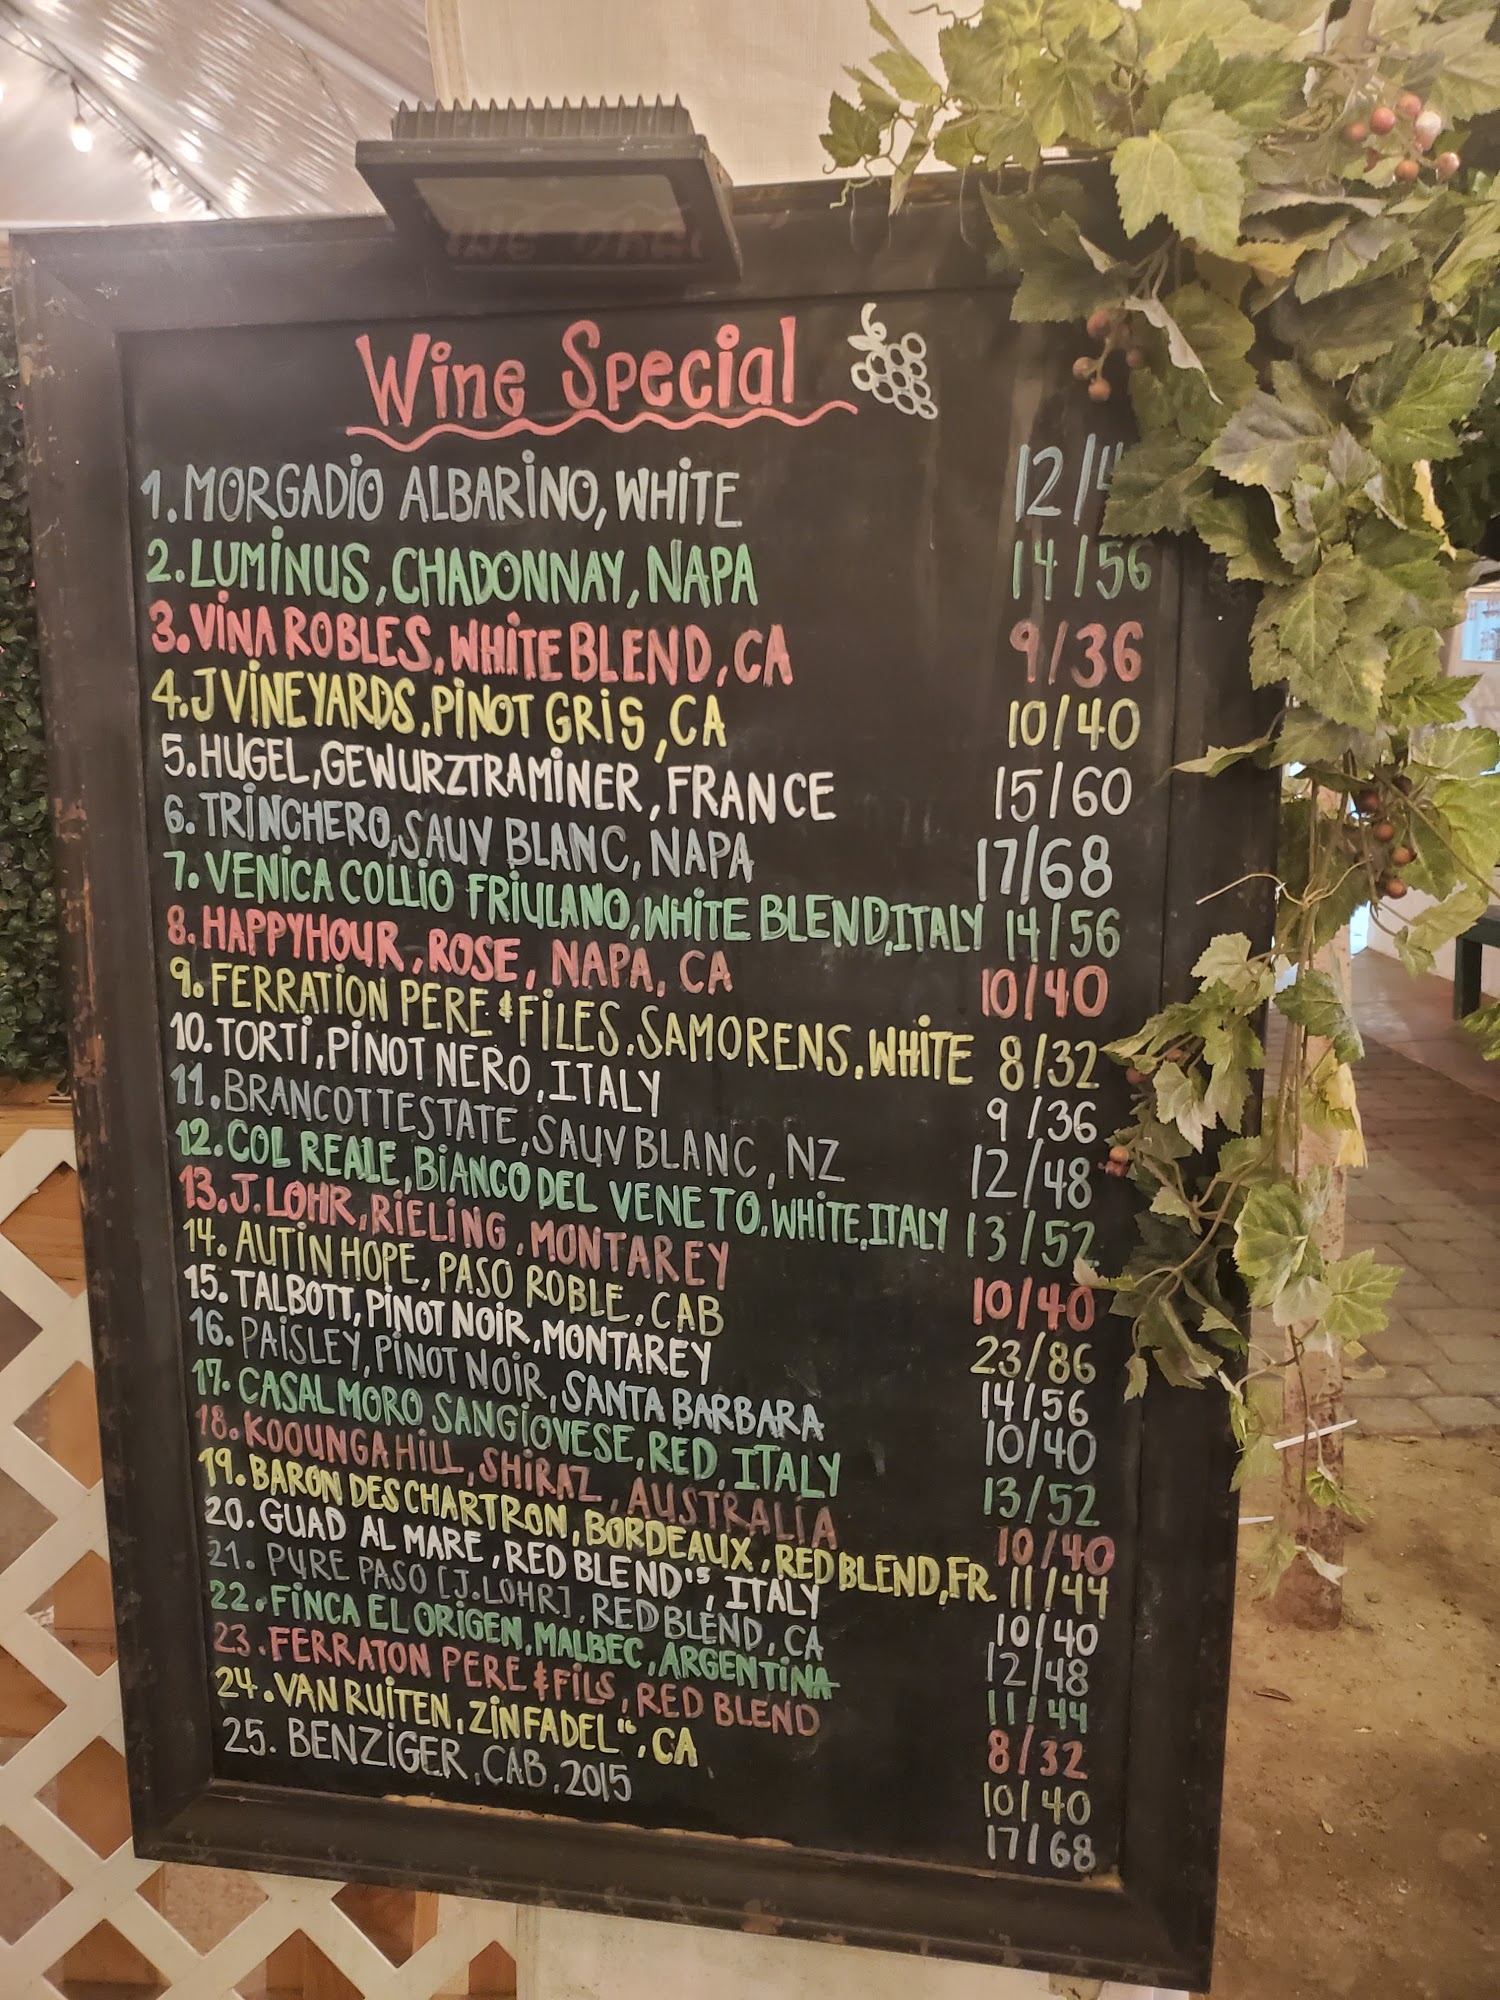 Wine Special
1. MORGADIO ALBARINO, WHITE 12/4
2. LUMINUS, CHADONNAY, NAPA 14/56
3. VINA ROBLES, WHITE BLEND, CA 9/36
4. J VINEYARDS, PINOT GRIS, CA 10/40
5. HUGEL, GEWURZTRAMINER, FRANCE 15/60
6. TRINCHERO, SAUV BLANC, NAPA 17/68
7. VENICA COLLIO FRIULANO, WHITE BLEND, ITALY 14/56
8. HAPPYHOUR, ROSE, NAPA, CA 10/40
9. FERRATION PERE & FILES, SAMORENS, WHITE 8/32
10. TORTI, PINOT NERO, ITALY 9/36
11. BRANCOTTESTATE, SAUV BLANC, NZ 12/48
12. COL REALE, BIANCO DEL VENETO, WHITE, ITALY 13/52
13. J. LOHR, RIELING, MONTAREY 10/40
14. AUTIN HOPE, PASO ROBLE, CAB 23/86
15. TALBOTT, PINOT NOIR, MONTAREY 14/56
16. PAISLEY, PINOT NOIR, SANTA BARBARA 10/40
17. CASAL MORO SANGIOVESE, RED, ITALY 13/52
18. KOOUNGA HILL, SHIRAZ, AUSTRALIA 10/40
19. BARON DES CHARTRON, BORDEAUX, RED BLEND, FR. 11/44
20. GUAD AL MARE, RED BLEND'15, ITALY 10/40
21. PURE PASO [J. LOHR], RED BLEND, CA 12/48
22. FINCA EL ORIGEN, MALBEC, ARGENTINA 11/44
23. FERRATON PERE & FILS, RED BLEND 8/32
24. VAN RUITEN, ZINFADEL "16, CA 10/40
25. BENZIGER, CAB, 2015 17/68